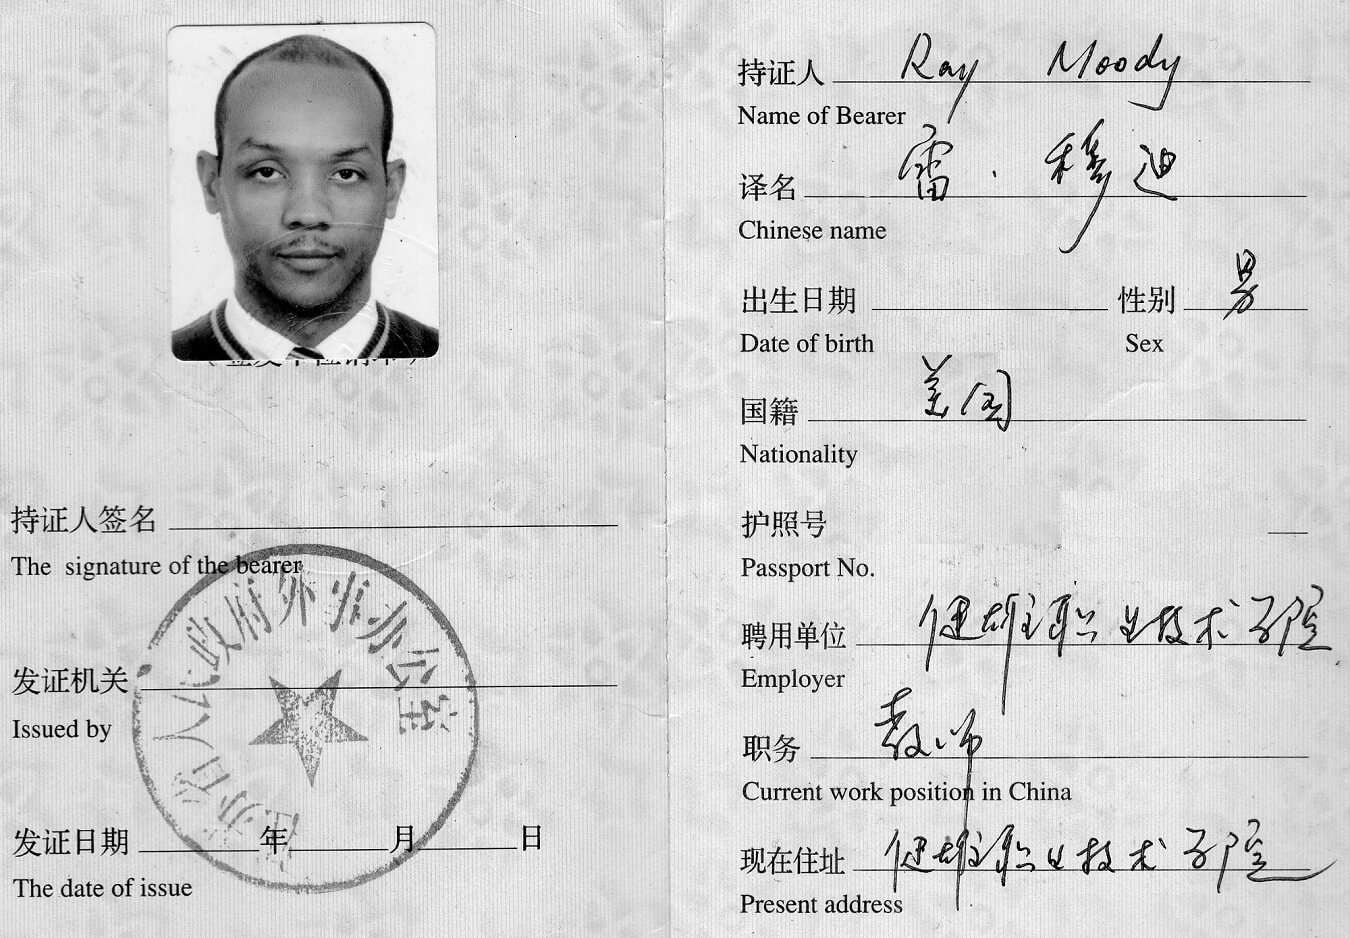 持证人签名
The signature of the bearer
发证机关
Issued by
江苏省人民政府外事办公室
发证日期 年 月 日
The date of issue
持证人 Ray Moody
Name of Bearer
译名 雷·穆迪
Chinese name
出生日期 性别 男
Date of birth Sex
国籍 美国
Nationality
护照号
Passport No.
聘用单位 健雄职业技术学院
Employer
职务 教师
Current work position in China
现在住址 健雄职业技术学院
Present address